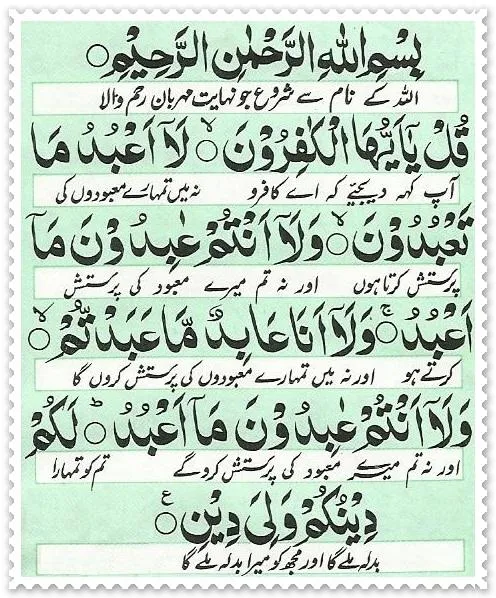 بِسْمِ اللهِ الرَّحْمٰنِ الرَّحِيْمِ ○
اللہ کے نام سے شروع جو نہایت مہربان رحم والا
قُلْ يٰٓاَيُّهَا الْكٰفِرُوْنَ ○ۙ لَآ اَعْبُدُ مَا
آپ کہہ دیجئے کہ اے کافرو نہ میں تمہارے معبودوں کی
تَعْبُدُوْنَ ○ۙ وَلَآ اَنْتُمْ عٰبِدُوْنَ مَآ
پرستش کرتا ہوں اور نہ تم میرے معبود کی پرستش
اَعْبُدُ ○ۚ وَلَآ اَنَا عَابِدٌ مَّا عَبَدْتُّمْ ○ۙ
کرتے ہو اور نہ میں تمہارے معبودوں کی پرستش کروں گا
وَلَآ اَنْتُمْ عٰبِدُوْنَ مَآ اَعْبُدُ ○ؕ لَكُمْ
اور نہ تم میرے معبود کی پرستش کروگے تم کو تمہارا
دِيْنُكُمْ وَلِيَ دِيْنِ ○ع
بدلہ ملے گا اور مجھ کو میرا بدلہ ملے گا